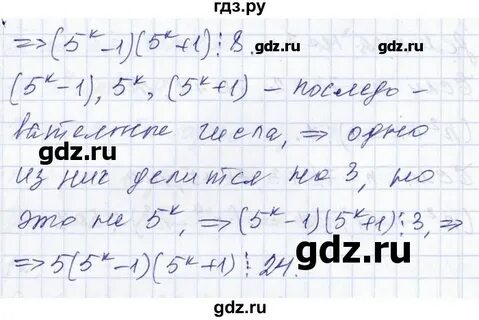 гдз.ру
⇒(5ᵏ-1)(5ᵏ+1)⋮8.
gdz.ru
(5ᵏ-1), 5ᵏ, (5ᵏ+1) - последо-
вательные числа, ⇒ одно
gdz.ru
из них делится на 3, но
gdz.ru
это не 5ᵏ, ⇒(5ᵏ-1)(5ᵏ+1)⋮3, ⇒
gdz.ru
⇒5(5ᵏ-1)(5ᵏ+1)⋮24.
gdz.ru